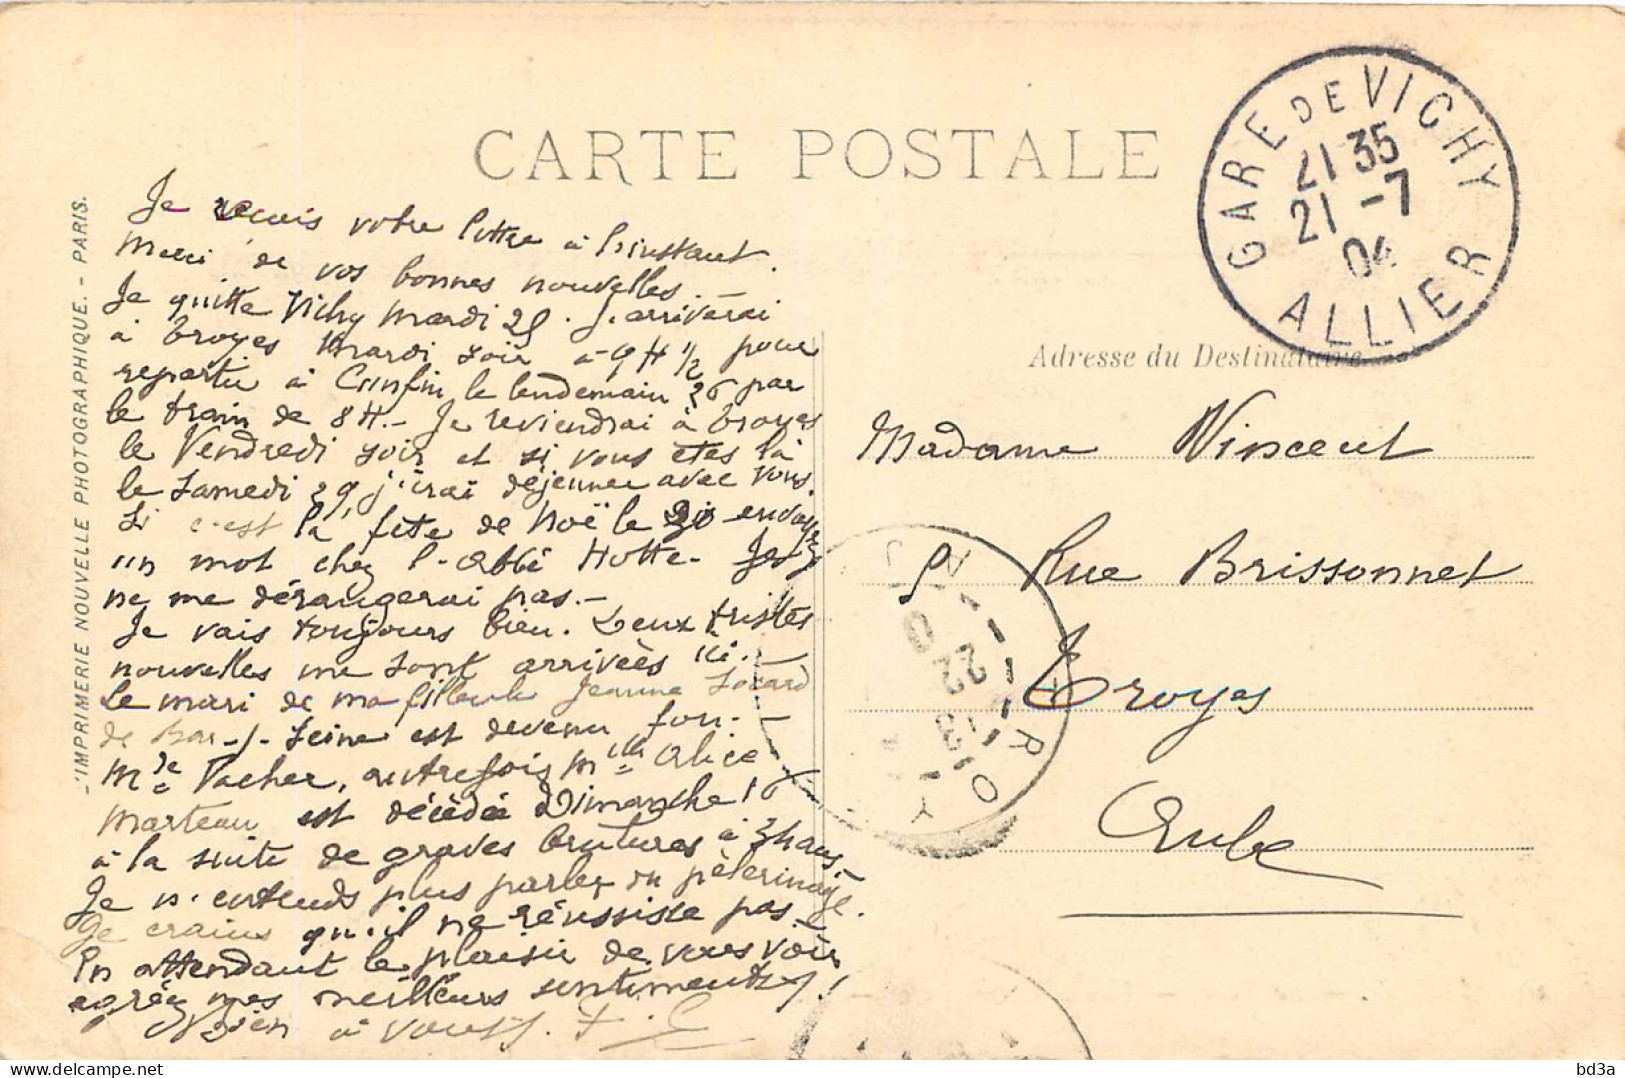 CARTE POSTALE
GARE DE VICHY
21 35
21 -7
04
ALLIER
-IMPRIMERIE NOUVELLE PHOTOGRAPHIQUE. - PARIS.
Je reçois votre lettre à l'instant.
Merci de vos bonnes nouvelles.
Je quitte Vichy Mardi 25. J'arriverai
à Troyes Mardi soir à 9 H 1/2 pour
repartir à Cunfin le lendemain 26 par
le train de 8 H. - Je reviendrai à Troyes
le Vendredi soir et si vous êtes là
le Samedi 29 j'irai déjeuner avec vous.
Si c'est la fête de Noë le 30 envoyez
un mot chez l'Abbé Hotte.
ne me dérangerai pas. -
Je vais toujours bien. Deux tristes
nouvelles me sont arrivées ici. -
Le mari de ma filleule Jeanne Socard
de Bar-s-Seine est devenu fou. -
Mde Vacher, autrefois Mlle Alice
Marteau est décédée Dimanche 16
à la suite de graves brulures à
Je n'entends plus parler du pèlerinage.
Je crains qu'il ne réussisse pas.
En attendant le plaisir de vous voir
agréez mes meilleurs sentiments
bien à vous.
Adresse du Destinataire
Madame Vincent
9 Rue Brissonnet
Troyes
Aube
TROYES
22
bd3a